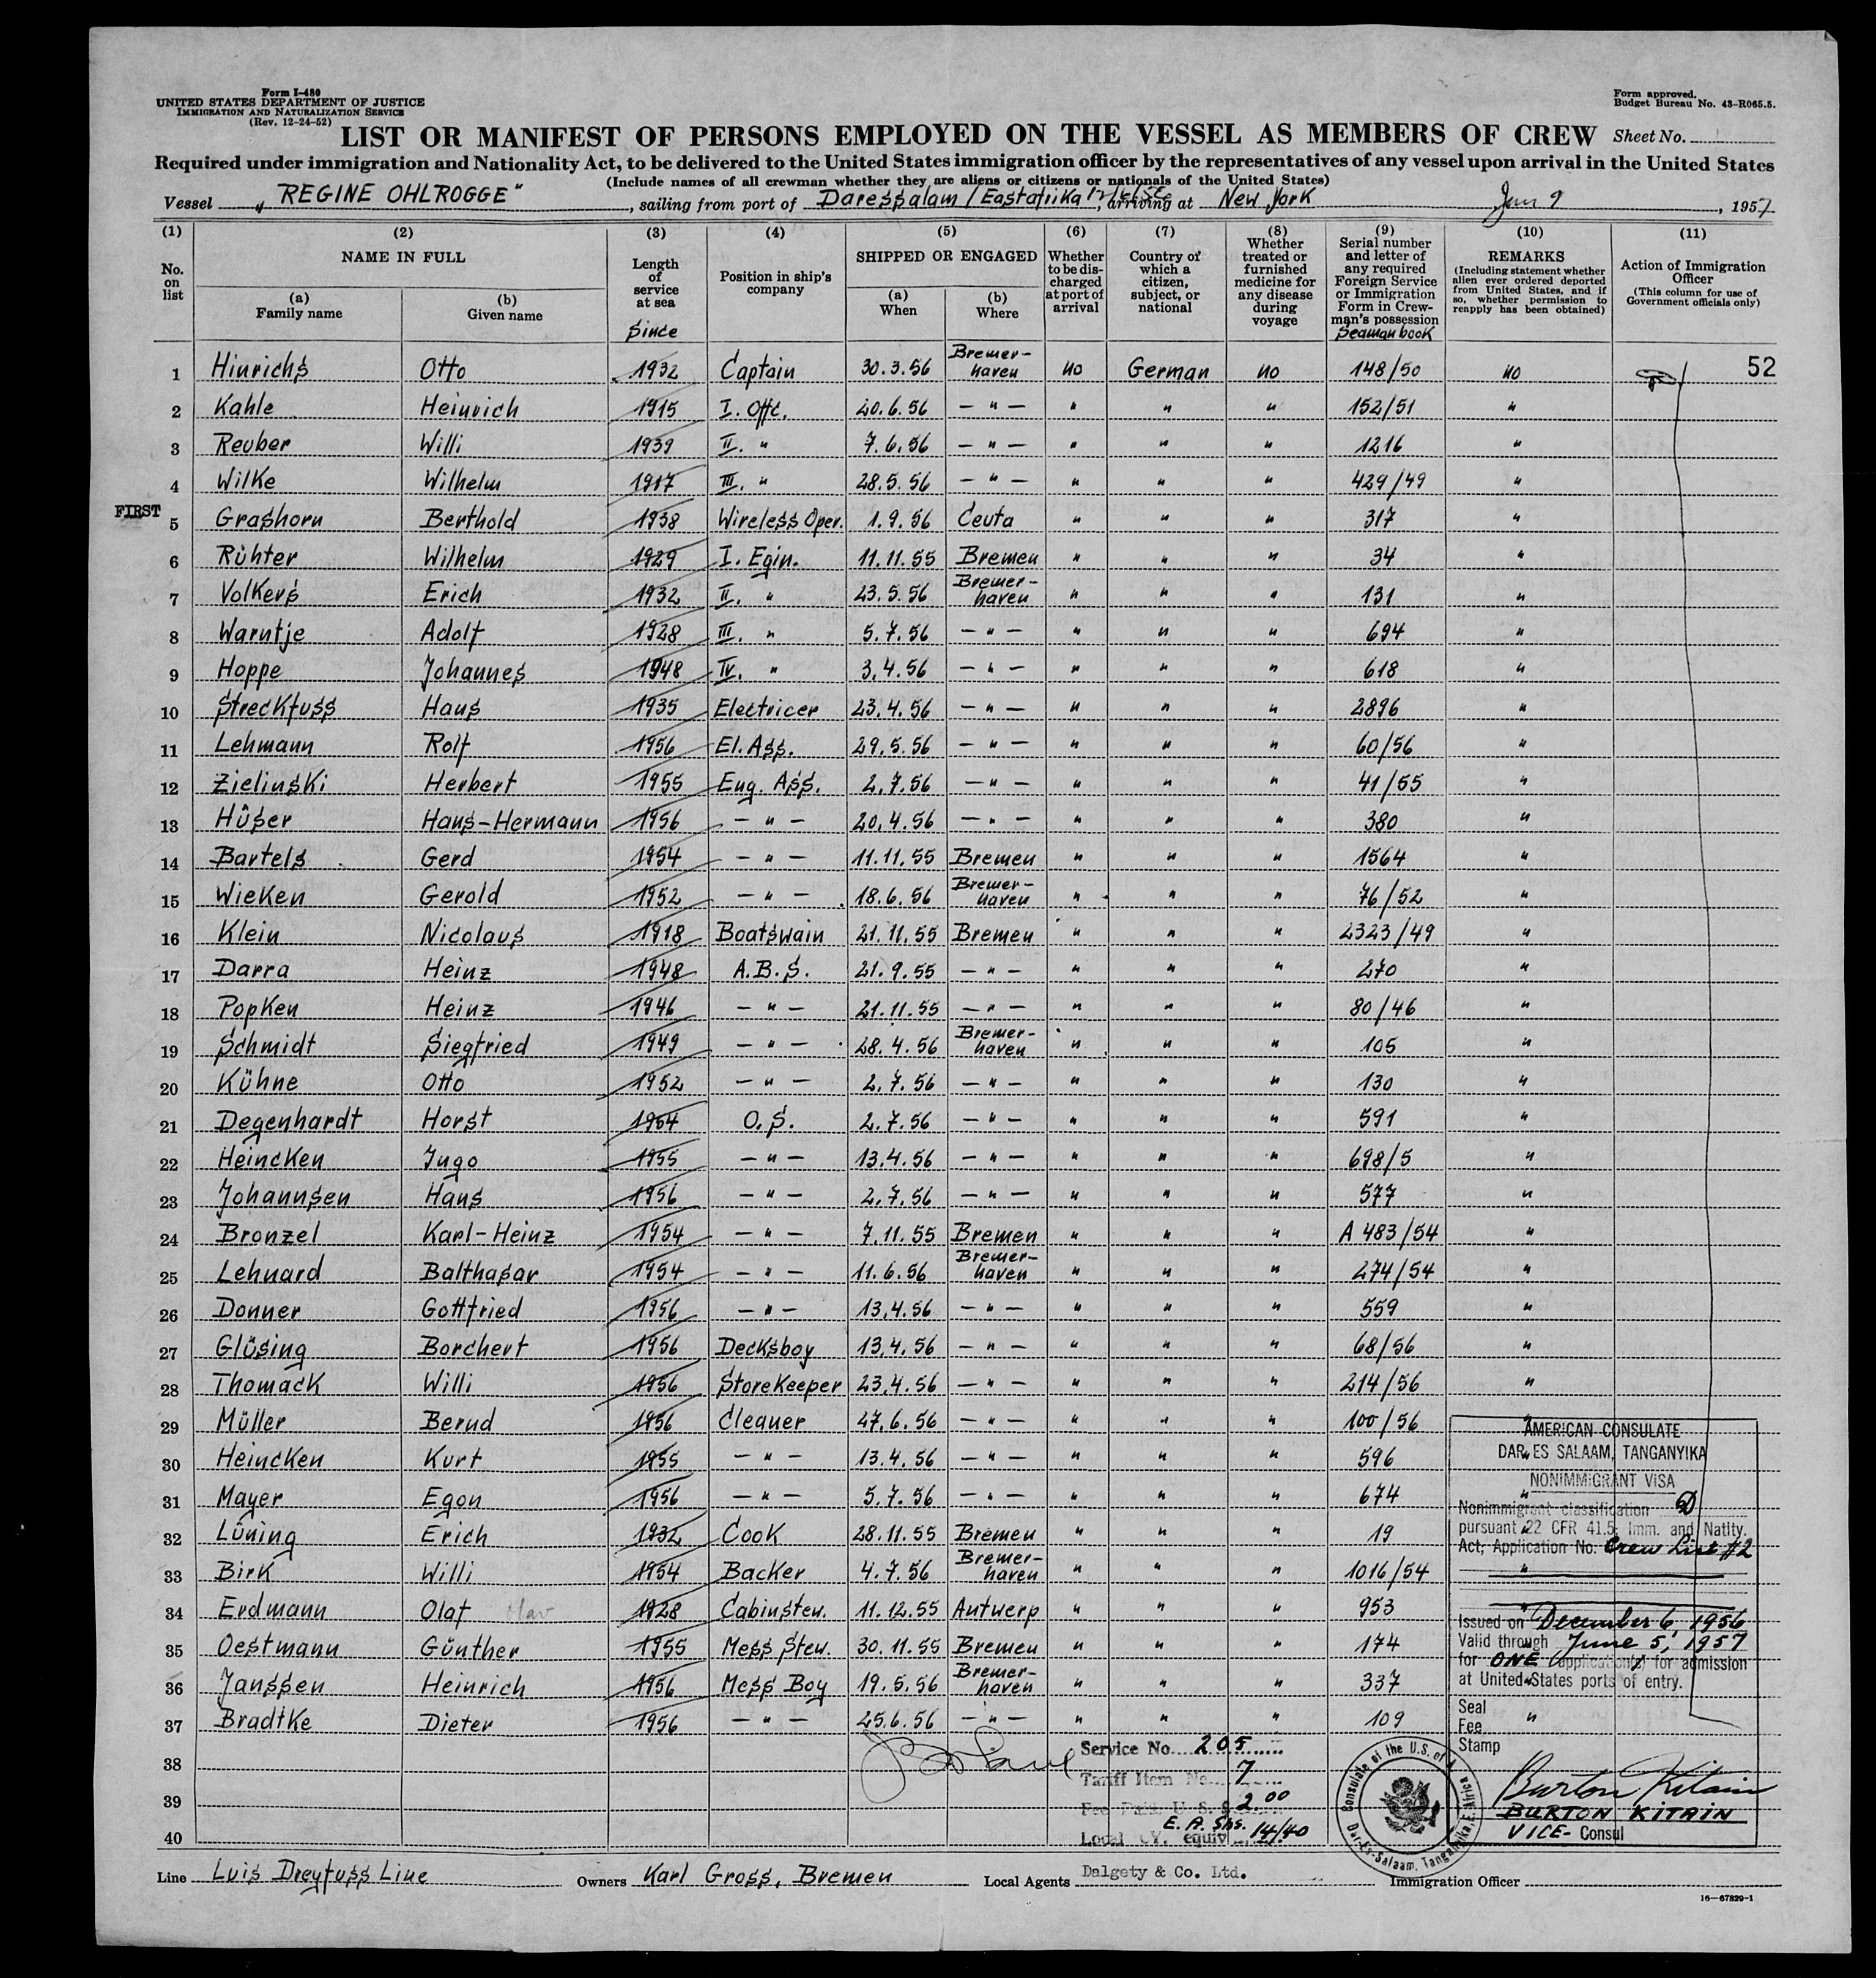 Form I-480
UNITED STATES DEPARTMENT OF JUSTICE
IMMIGRATION AND NATURALIZATION SERVICE
(Rev. 12-24-52)
Form approved.
Budget Bureau No. 43-R065.5.
LIST OR MANIFEST OF PERSONS EMPLOYED ON THE VESSEL AS MEMBERS OF CREW Sheet No.
Required under immigration and Nationality Act, to be delivered to the United States immigration officer by the representatives of any vessel upon arrival in the United States
(Include names of all crewman whether they are aliens or citizens or nationals of the United States)
Vessel „REGINE OHLROGGE“, sailing from port of Daressalam / Eastafrika, arriving at New York Jan 9, 1957
(1) No. on list
(2) NAME IN FULL
(a) Family name
(b) Given name
(3) Length of service at sea since
(4) Position in ship's company
(5) SHIPPED OR ENGAGED
(a) When
(b) Where
(6) Whether to be discharged at port of arrival
(7) Country of which a citizen, subject, or national
(8) Whether treated or furnished medicine for any disease during voyage
(9) Serial number and letter of any required Foreign Service or Immigration Form in Crewman's possession Seaman book
(10) REMARKS (Including statement whether alien ever ordered deported from United States, and if so, whether permission to reapply has been obtained)
(11) Action of Immigration Officer (This column for use of Government officials only)
1 Hinrichs Otto 1932 Captain 30.3.56 Bremerhaven no German no 148/50 no 52
2 Kahle Heinrich 1915 I. Offc. 20.6.56 — " — " " " 152/51 "
3 Reuber Willi 1939 II. " 7.6.56 — " — " " " 1216 "
4 Wilke Wilhelm 1917 III. " 28.5.56 — " — " " " 429/49 "
FIRST
5 Grashorn Berthold 1938 Wireless Oper. 1.9.56 Ceuta " " " 317 "
6 Rühter Wilhelm 1929 I. Egin. 11.11.55 Bremen " " " 34 "
7 Volkers Erich 1932 II. " 23.5.56 Bremerhaven " " " 131 "
8 Warntje Adolf 1928 III. " 5.7.56 — " — " " " 694 "
9 Hoppe Johannes 1948 IV. " 3.4.56 — " — " " " 618 "
10 Streckfuss Hans 1935 Electricer 23.4.56 — " — " " " 2896 "
11 Lehmann Rolf 1956 El. Ass. 29.5.56 — " — " " " 60/56 "
12 Zielinski Herbert 1955 Eng. Ass. 2.7.56 — " — " " " 41/55 "
13 Hüser Hans-Hermann 1956 — " — 20.4.56 — " — " " " 380 "
14 Bartels Gerd 1954 — " — 11.11.55 Bremen " " " 1564 "
15 Wieken Gerold 1952 — " — 18.6.56 Bremerhaven " " " 76/52 "
16 Klein Nicolaus 1918 Boatswain 21.11.55 Bremen " " " 2323/49 "
17 Darra Heinz 1948 A.B.S. 21.9.55 — " — " " " 270 "
18 Popken Heinz 1946 — " — 21.11.55 — " — " " " 80/46 "
19 Schmidt Siegfried 1949 — " — 28.4.56 Bremerhaven " " " 105 "
20 Kühne Otto 1952 — " — 2.7.56 — " — " " " 130 "
21 Degenhardt Horst 1954 O.S. 2.7.56 — " — " " " 591 "
22 Heincken Ingo 1955 — " — 13.4.56 — " — " " " 698/5 "
23 Johannsen Hans 1956 — " — 2.7.56 — " — " " " 577 "
24 Bronzel Karl-Heinz 1954 — " — 7.11.55 Bremen " " " A 483/54 "
25 Lehnard Balthasar 1954 — " — 11.6.56 Bremerhaven " " " 274/54 "
26 Donner Gottfried 1956 — " — 13.4.56 — " — " " " 559 "
27 Glüsing Borchert 1956 Decksboy 13.4.56 — " — " " " 68/56 "
28 Thomack Willi 1956 Storekeeper 23.4.56 — " — " " " 214/56 "
29 Müller Bernd 1956 Cleaner 27.6.56 — " — " " " 100/56 "
30 Heincken Kurt 1955 — " — 13.4.56 — " — " " " 596 "
31 Mayer Egon 1956 — " — 5.7.56 — " — " " " 674 "
32 Lüning Erich 1932 Cook 28.11.55 Bremen " " " 19 "
33 Birk Willi 1954 Backer 4.7.56 Bremerhaven " " " 1016/54 "
34 Erdmann Olaf 1928 Cabinstew. 11.12.55 Antwerp " " " 953 "
35 Oestmann Günther 1955 Mess Stew. 30.11.55 Bremen " " " 174 "
36 Janssen Heinrich 1956 Mess Boy 19.5.56 Bremerhaven " " " 337 "
37 Bradtke Dieter 1956 — " — 25.6.56 — " — " " " 109 "
38
39
40
AMERICAN CONSULATE
DAR ES SALAAM, TANGANYIKA
NONIMMIGRANT VISA
Nonimmigrant classification D
pursuant 22 CFR 41.5, Imm. and Natity.
Act, Application No. Crew List #2
Issued on December 6, 1956
Valid through June 5, 1957
for ONE application(s) for admission
at United States ports of entry.
Seal
Fee
Stamp
Burton Kitain
BURTON KITAIN
VICE-Consul
Service No. 205
Tariff Item No. 7
Fee Paid U. S. $ 2.00
E. A. Shs.
Local CY. equiv 14/40
Consulate of the U.S. of America
Dar-Es-Salaam, Tanganyika
Line Luis Dreyfuss Line Owners Karl Gross, Bremen Local Agents Dalgety & Co. Ltd. Immigration Officer
16—67829-1